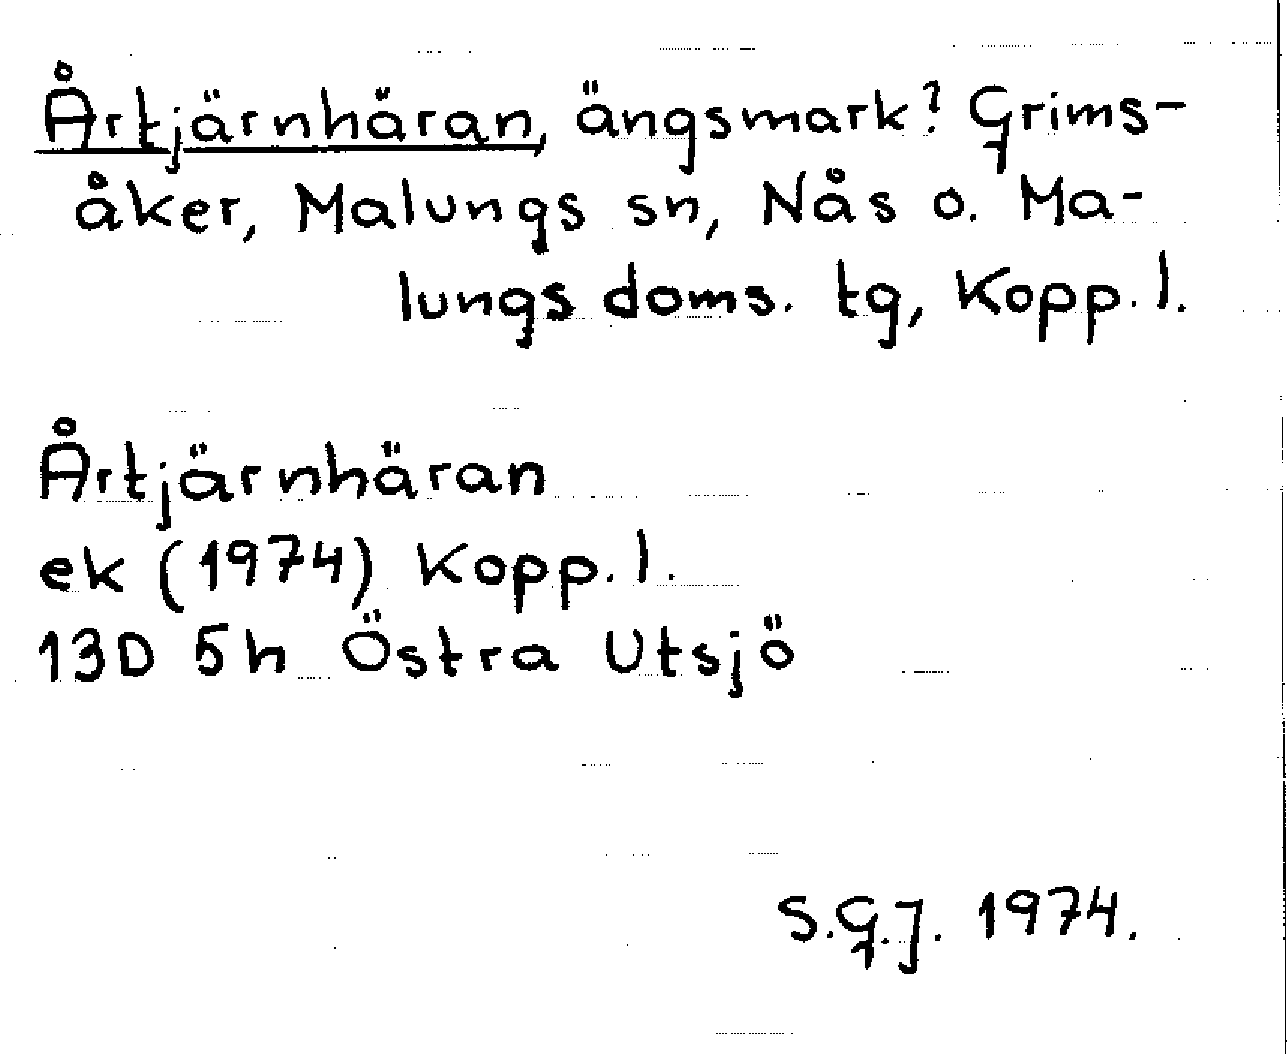 Årtjärnhäran, ängsmark? Grims-
åker, Malungs sn, Nås o. Ma-
lungs doms. tg, Kopp. l.
Årtjärnhäran
ek (1974) Kopp. l.
13D 5h Östra Utsjö
S.G.J. 1974.